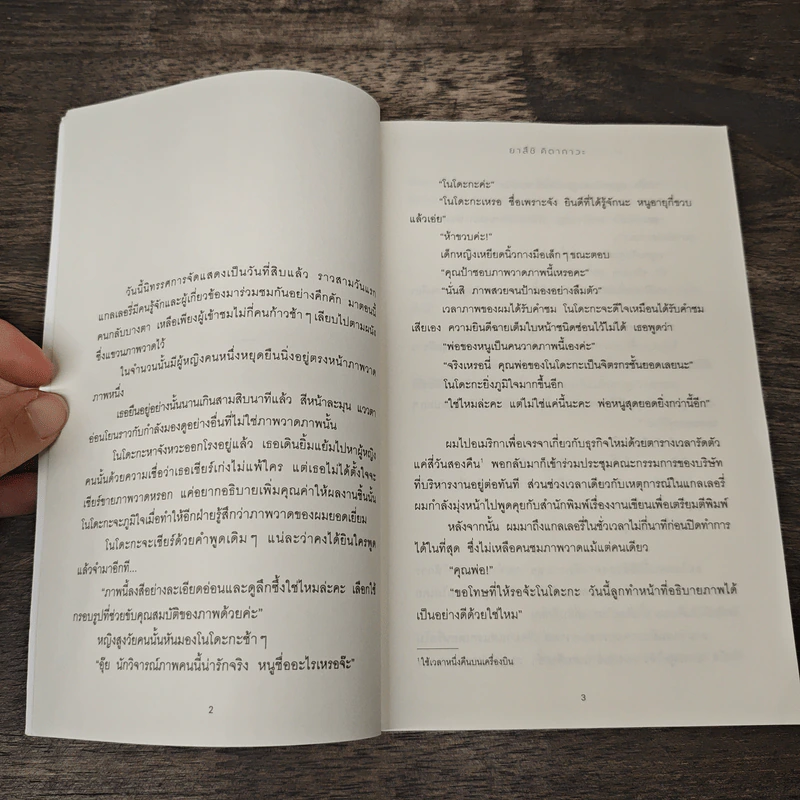 วันนี้นิทรรศการจัดแสดงเป็นวันที่สิบแล้ว ราวสามวันแรก
แกลเลอรีมีคนรู้จักและผู้เกี่ยวข้องมาร่วมชมกันอย่างคึกคัก มาตอนนี้
คนกลับบางตา เหลือเพียงผู้เข้าชมไม่กี่คนก้าวช้าๆ เลียบไปตามผนัง
ซึ่งแขวนภาพวาดไว้
ในจำนวนนั้นมีผู้หญิงคนหนึ่งหยุดยืนนิ่งอยู่ตรงหน้าภาพวาด
ภาพหนึ่ง
เธอยืนอยู่อย่างนั้นนานเกินสามสิบนาทีแล้ว สีหน้าละมุน แววตา
อ่อนโยนราวกับกำลังมองดูอย่างอื่นที่ไม่ใช่ภาพวาดภาพนั้น
โนโดะกะหาจังหวะออกโรงอยู่แล้ว เธอเดินยิ้มแย้มไปหาผู้หญิง
คนนั้นด้วยความเชื่อว่าเธอเชียร์เก่งไม่แพ้ใคร แต่เธอไม่ได้ตั้งใจจะ
เชียร์ขายภาพวาดหรอก แค่อยากอธิบายเพิ่มคุณค่าให้ผลงานชิ้นนั้น
โนโดะกะจะภูมิใจเมื่อทำให้อีกฝ่ายรู้สึกว่าภาพวาดของผมยอดเยี่ยม
โนโดะกะจะเชียร์ด้วยคำพูดเดิมๆ แน่ละว่าคงได้ยินใครพูด
แล้วจำมาอีกที...
“ภาพนี้ลงสีอย่างละเอียดอ่อนและดูลึกซึ้งใช่ไหมล่ะคะ เลือกใช้
กรอบรูปที่ช่วยขับคุณสมบัติของภาพด้วยค่ะ”
หญิงสูงวัยคนนั้นหันมองโนโดะกะช้าๆ
“อุ๊ย นักวิจารณ์ภาพคนนี้น่ารักจริง หนูชื่ออะไรเหรอจ๊ะ”
2
ยาสึชิ คิตากาวะ
“โนโดะกะค่ะ”
“โนโดะกะเหรอ ชื่อเพราะจัง ยินดีที่ได้รู้จักนะ หนูอายุกี่ขวบ
แล้วเอ่ย”
“ห้าขวบค่ะ!”
เด็กหญิงเหยียดนิ้วกางมือเล็กๆ ขณะตอบ
“คุณป้าชอบภาพวาดภาพนี้เหรอคะ”
“นั่นสิ ภาพสวยจนป้ามองอย่างลืมตัว”
เวลาภาพของผมได้รับคำชม โนโดะกะจะดีใจเหมือนได้รับคำชม
เสียเอง ความยินดีฉายเต็มใบหน้าชนิดซ่อนไว้ไม่ได้ เธอพูดว่า
“พ่อของหนูเป็นคนวาดภาพนี้เองค่ะ”
“จริงเหรอนี่ คุณพ่อของโนโดะกะเป็นจิตรกรชั้นยอดเลยนะ”
โนโดะกะยิ่งภูมิใจมากขึ้นอีก
“ใช่ไหมล่ะคะ แต่ไม่ใช่แค่นี้นะคะ พ่อหนูสุดยอดยิ่งกว่านี้อีก”
ผมไปอเมริกาเพื่อเจรจาเกี่ยวกับธุรกิจใหม่ด้วยตารางเวลารัดตัว
แค่สี่วันสองคืน¹ พอกลับมาก็เข้าร่วมประชุมคณะกรรมการของบริษัท
ที่บริหารงานอยู่ต่อทันที ส่วนช่วงเวลาเดียวกับเหตุการณ์ในแกลเลอรี
ผมกำลังมุ่งหน้าไปพูดคุยกับสำนักพิมพ์เรื่องงานเขียนเพื่อเตรียมตีพิมพ์
หลังจากนั้น ผมมาถึงแกลเลอรีในชั่วเวลาไม่กี่นาทีก่อนปิดทำการ
ได้ในที่สุด ซึ่งไม่เหลือคนชมภาพวาดแม้แต่คนเดียว
“คุณพ่อ!”
“ขอโทษที่ให้รอจ้ะโนโดะกะ วันนี้ลูกทำหน้าที่อธิบายภาพได้
เป็นอย่างดีด้วยใช่ไหม”
¹ ใช้เวลาหนึ่งคืนบนเครื่องบิน
3